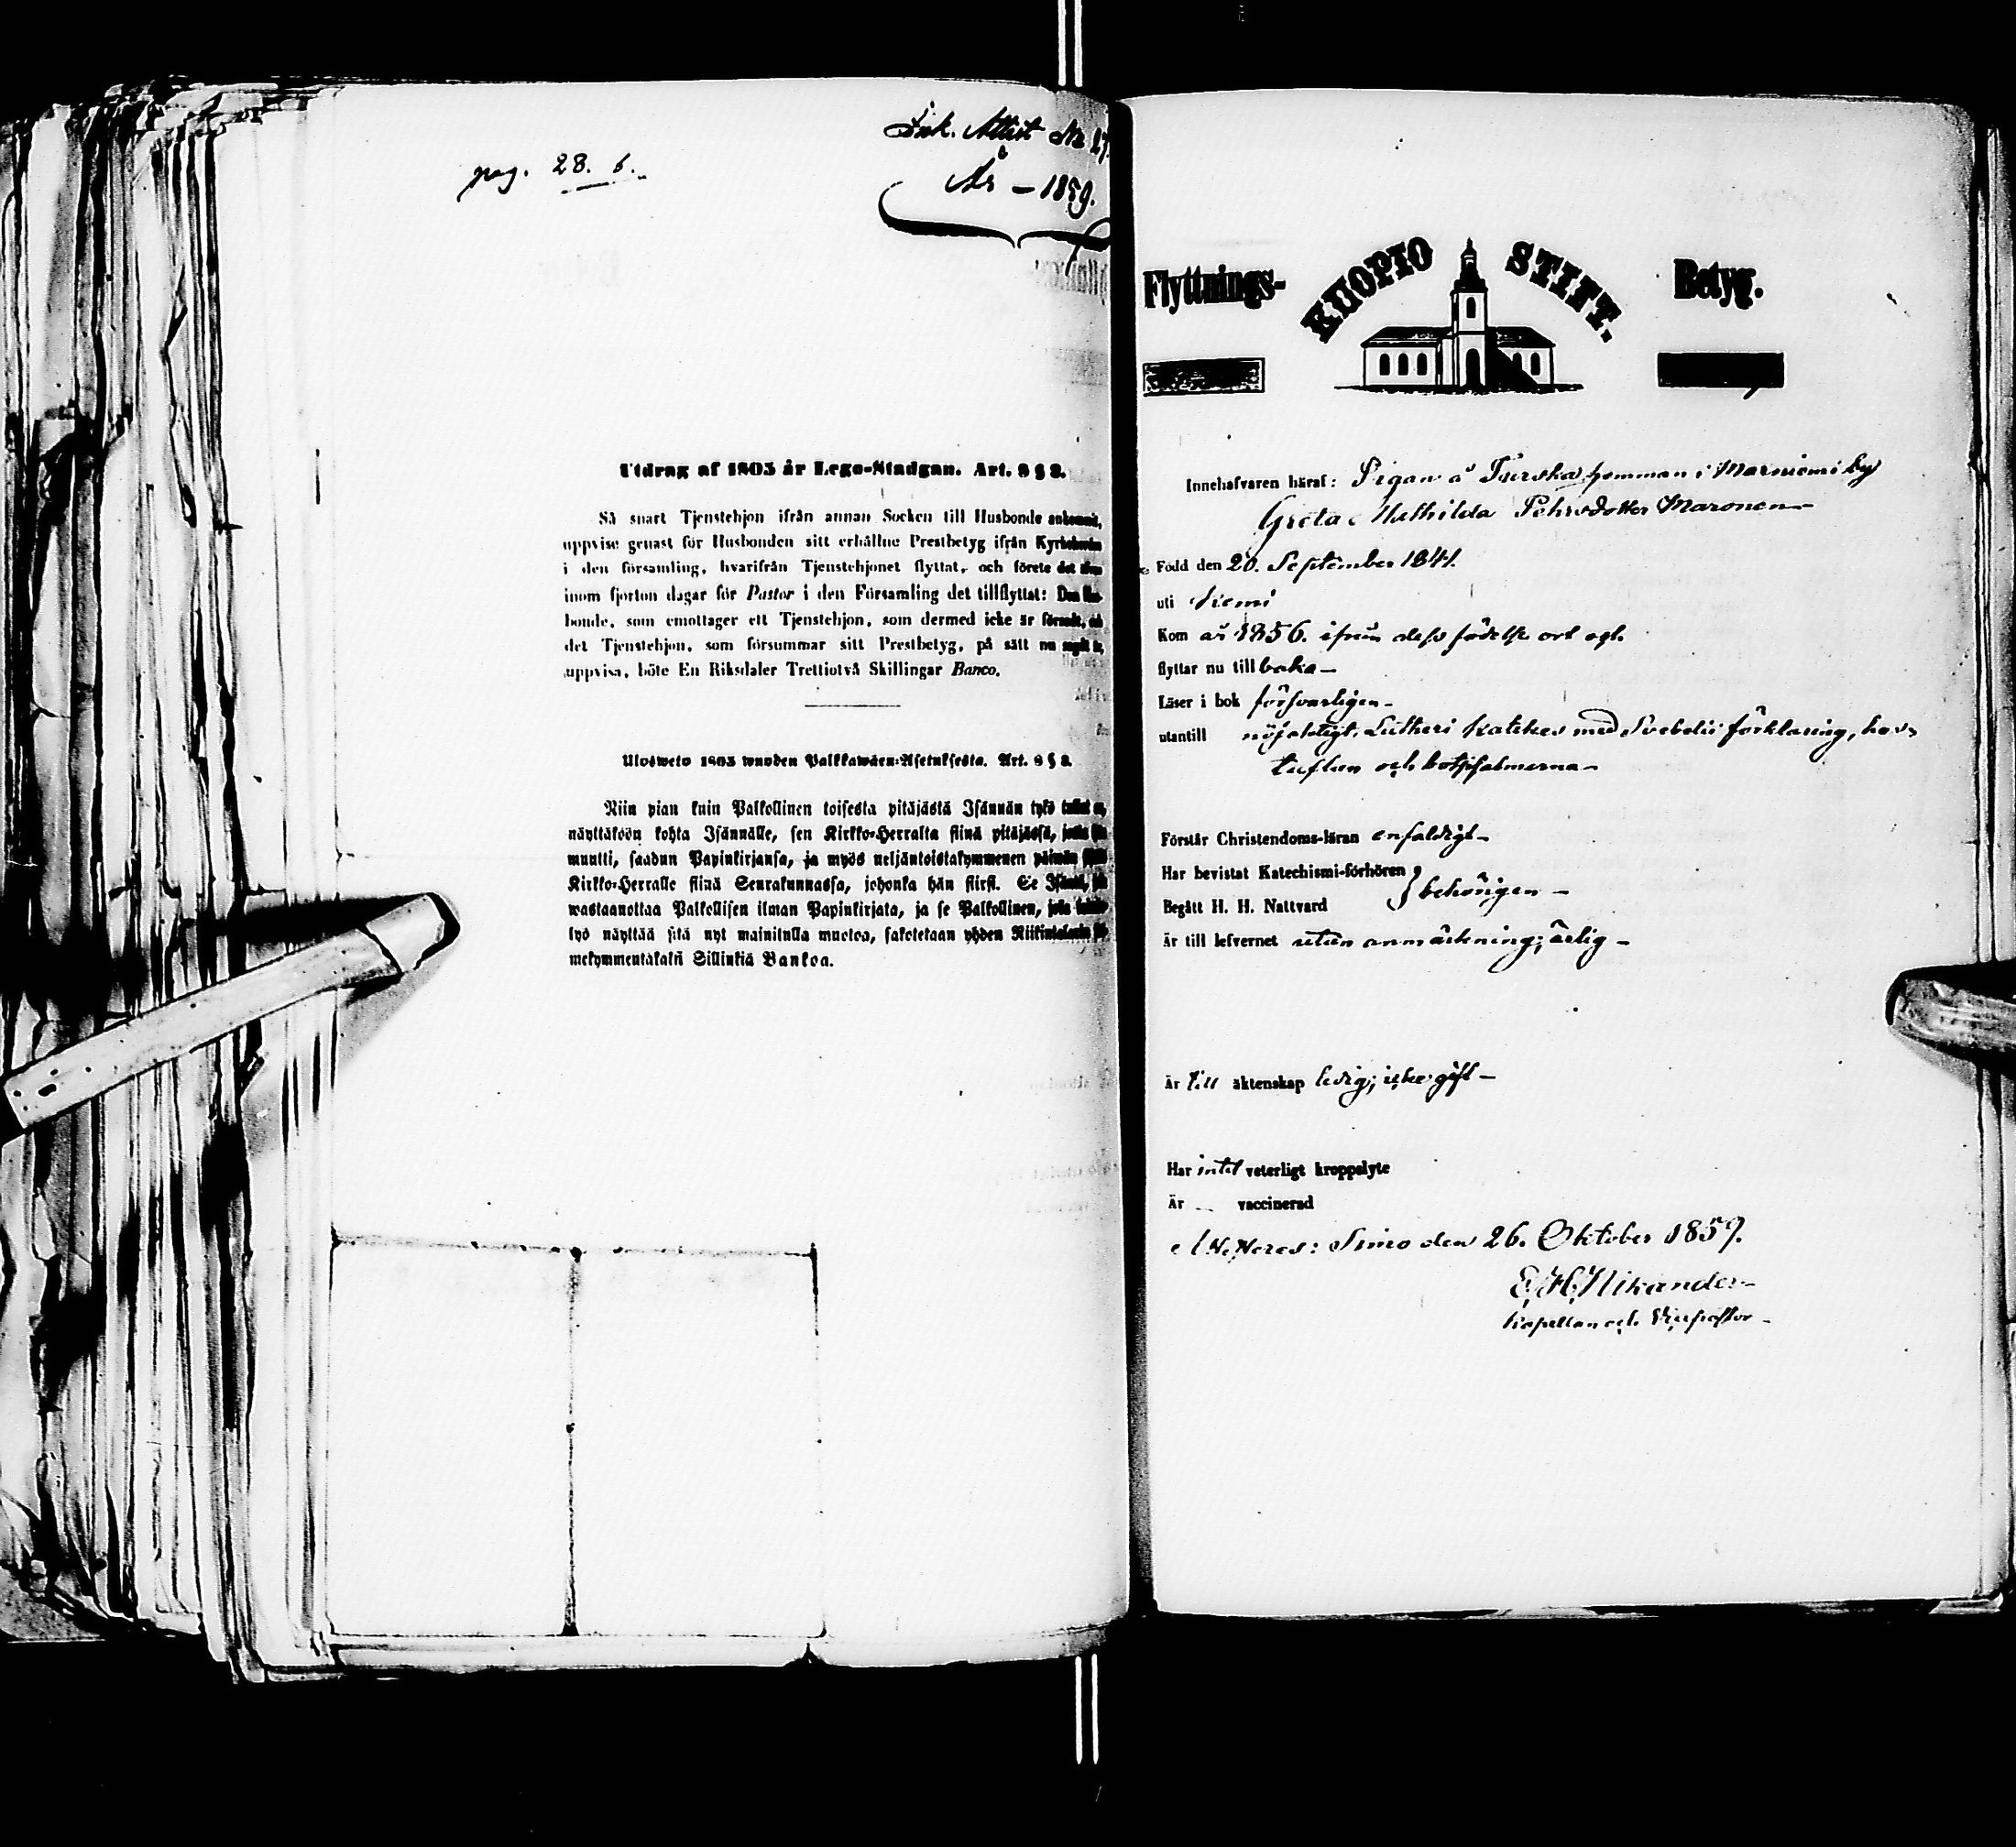 pag. 28. b.
Ink. Attest No 27.
År – 1859.
Utdrag af 1805 år Lego-Stadgan. Art. 9 § 8.
Så snart Tjenstehjon ifrån annan Socken till Husbonde ankommit,
uppvise genast för Husbonden sitt erhållne Prestbetyg ifrån Kyrkoherden
i den församling, hvarifrån Tjenstehjonet flyttat, och förete det
inom fjorton dagar för Pastor i den Församling det tillflyttat: Den Hus-
bonde, som emottager ett Tjenstehjon, som dermed icke är försedt, och
det Tjenstehjon, som försummar sitt Prestbetyg, på sätt nu sagdt är,
uppvisa, böte En Riksdaler Trettiotvå Skillingar Banco.
Ulosweto 1805 wuoden Palkkawäen-Asetuksesta. Art. 9 § 8.
Niin pian kuin Palkollinen toisesta pitäjästä Isännän tykö tullut on,
näyttäköön kohta Isännälle, sen Kirkko-Herralta siinä pitäjässä, josta
muutti, saadun Papinkirjansa, ja myös neljäntoistakymmenen päiwän
Kirkko-Herralle siinä Seurakunnassa, johonka hän siirsi. Se Isäntä, joka
wastaanottaa Palkollisen ilman Papinkirjata, ja se Palkollinen, joka
lyö näyttää sitä nyt mainitulla muotoa, sakotetaan yhden Riikintalarin
mekymmentäkaksi Sillinkiä Bankoa.
Flyttnings- KUOPIO STIFT. Betyg.
Innehafvaren häraf: Pigan å Tserska hemman i Marniemi by
Greta Mathilda Pehrsdotter Maronen
Född den 20. September 1841.
uti Kemi
Kom år 1856. ifrån dess födelse ort och
flyttar nu till baka –
Läser i bok försvarligen –
utantill nöjaktigt. Lutheri Katekes med Svebelii förklaring, hus-
taflan och botpsalmerna –
Förstår Christendoms-läran enfaldigt –
Har bevistat Katechismi-förhören
Begått H. H. Nattvard } behörigen –
Är till lefvernet utan anmärkning; ärlig –
Är till äktenskap ledig; icke gift –
Har intet veterligt kroppslyte
Är – vaccinerad
Attesteras: Simo den 26. Oktober 1859.
E. H. Nikander
Kapellan och Vicepastor –